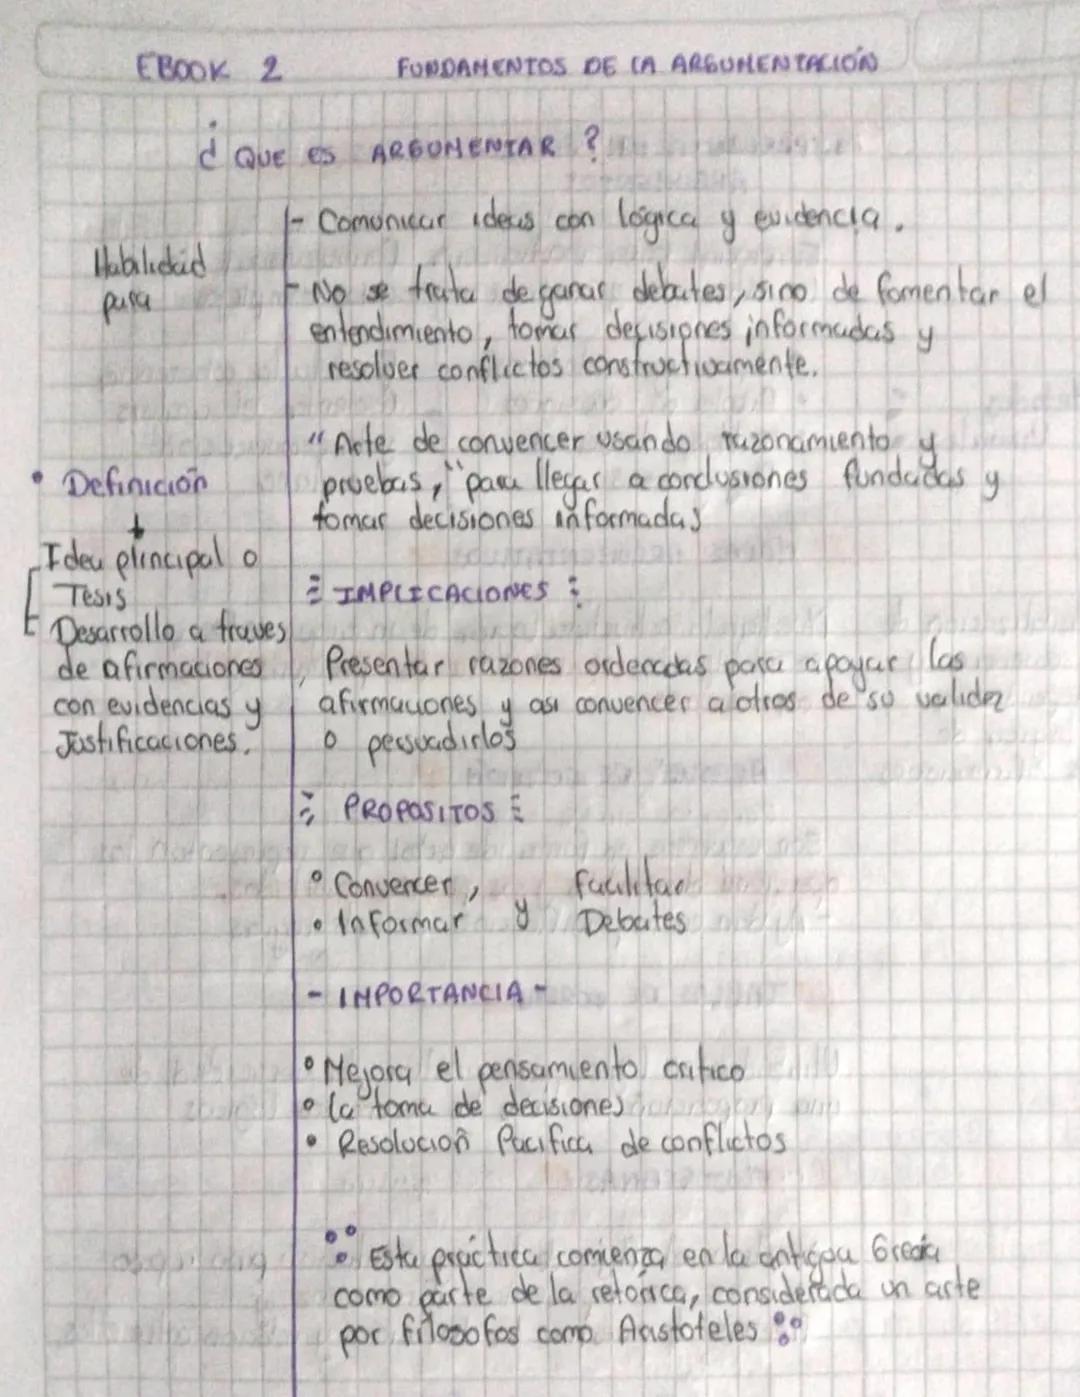 EBOOK 2 FUNDAMENTOS DE LA ARGUMENTACIÓN
¿QUE ES ARGUMENTAR?
Habilidad
para
- Comunicar ideas con lógica y evidencia.
- No se trata de ganar debates, sino de fomentar el
entendimiento, tomar desisiones informadas y
resolver conflictos constructivamente.
• Definición
"Arte de convencer usando razonamiento y
pruebas," para llegar a conclusiones fundadas y
tomar decisiones informadas
Idea principal o
Tesis
Desarrollo a traves
de afirmaciones
con evidencias y
Justificaciones.
IMPLICACIONES
Presentar razones ordenadas para apoyar las
afirmaciones y asi convencer a otros de su validez
o persuadirlos
PROPOSITOS
• Convencer, facilitar
• Informar y Debates
- IMPORTANCIA -
• Mejora el pensamiento critico
• La toma de decisiones
• Resolución Pacifica de conflictos
Esta práctica comienza en la antigua Grecia
como parte de la retórica, considerada un arte
por filosofos como Aristoteles